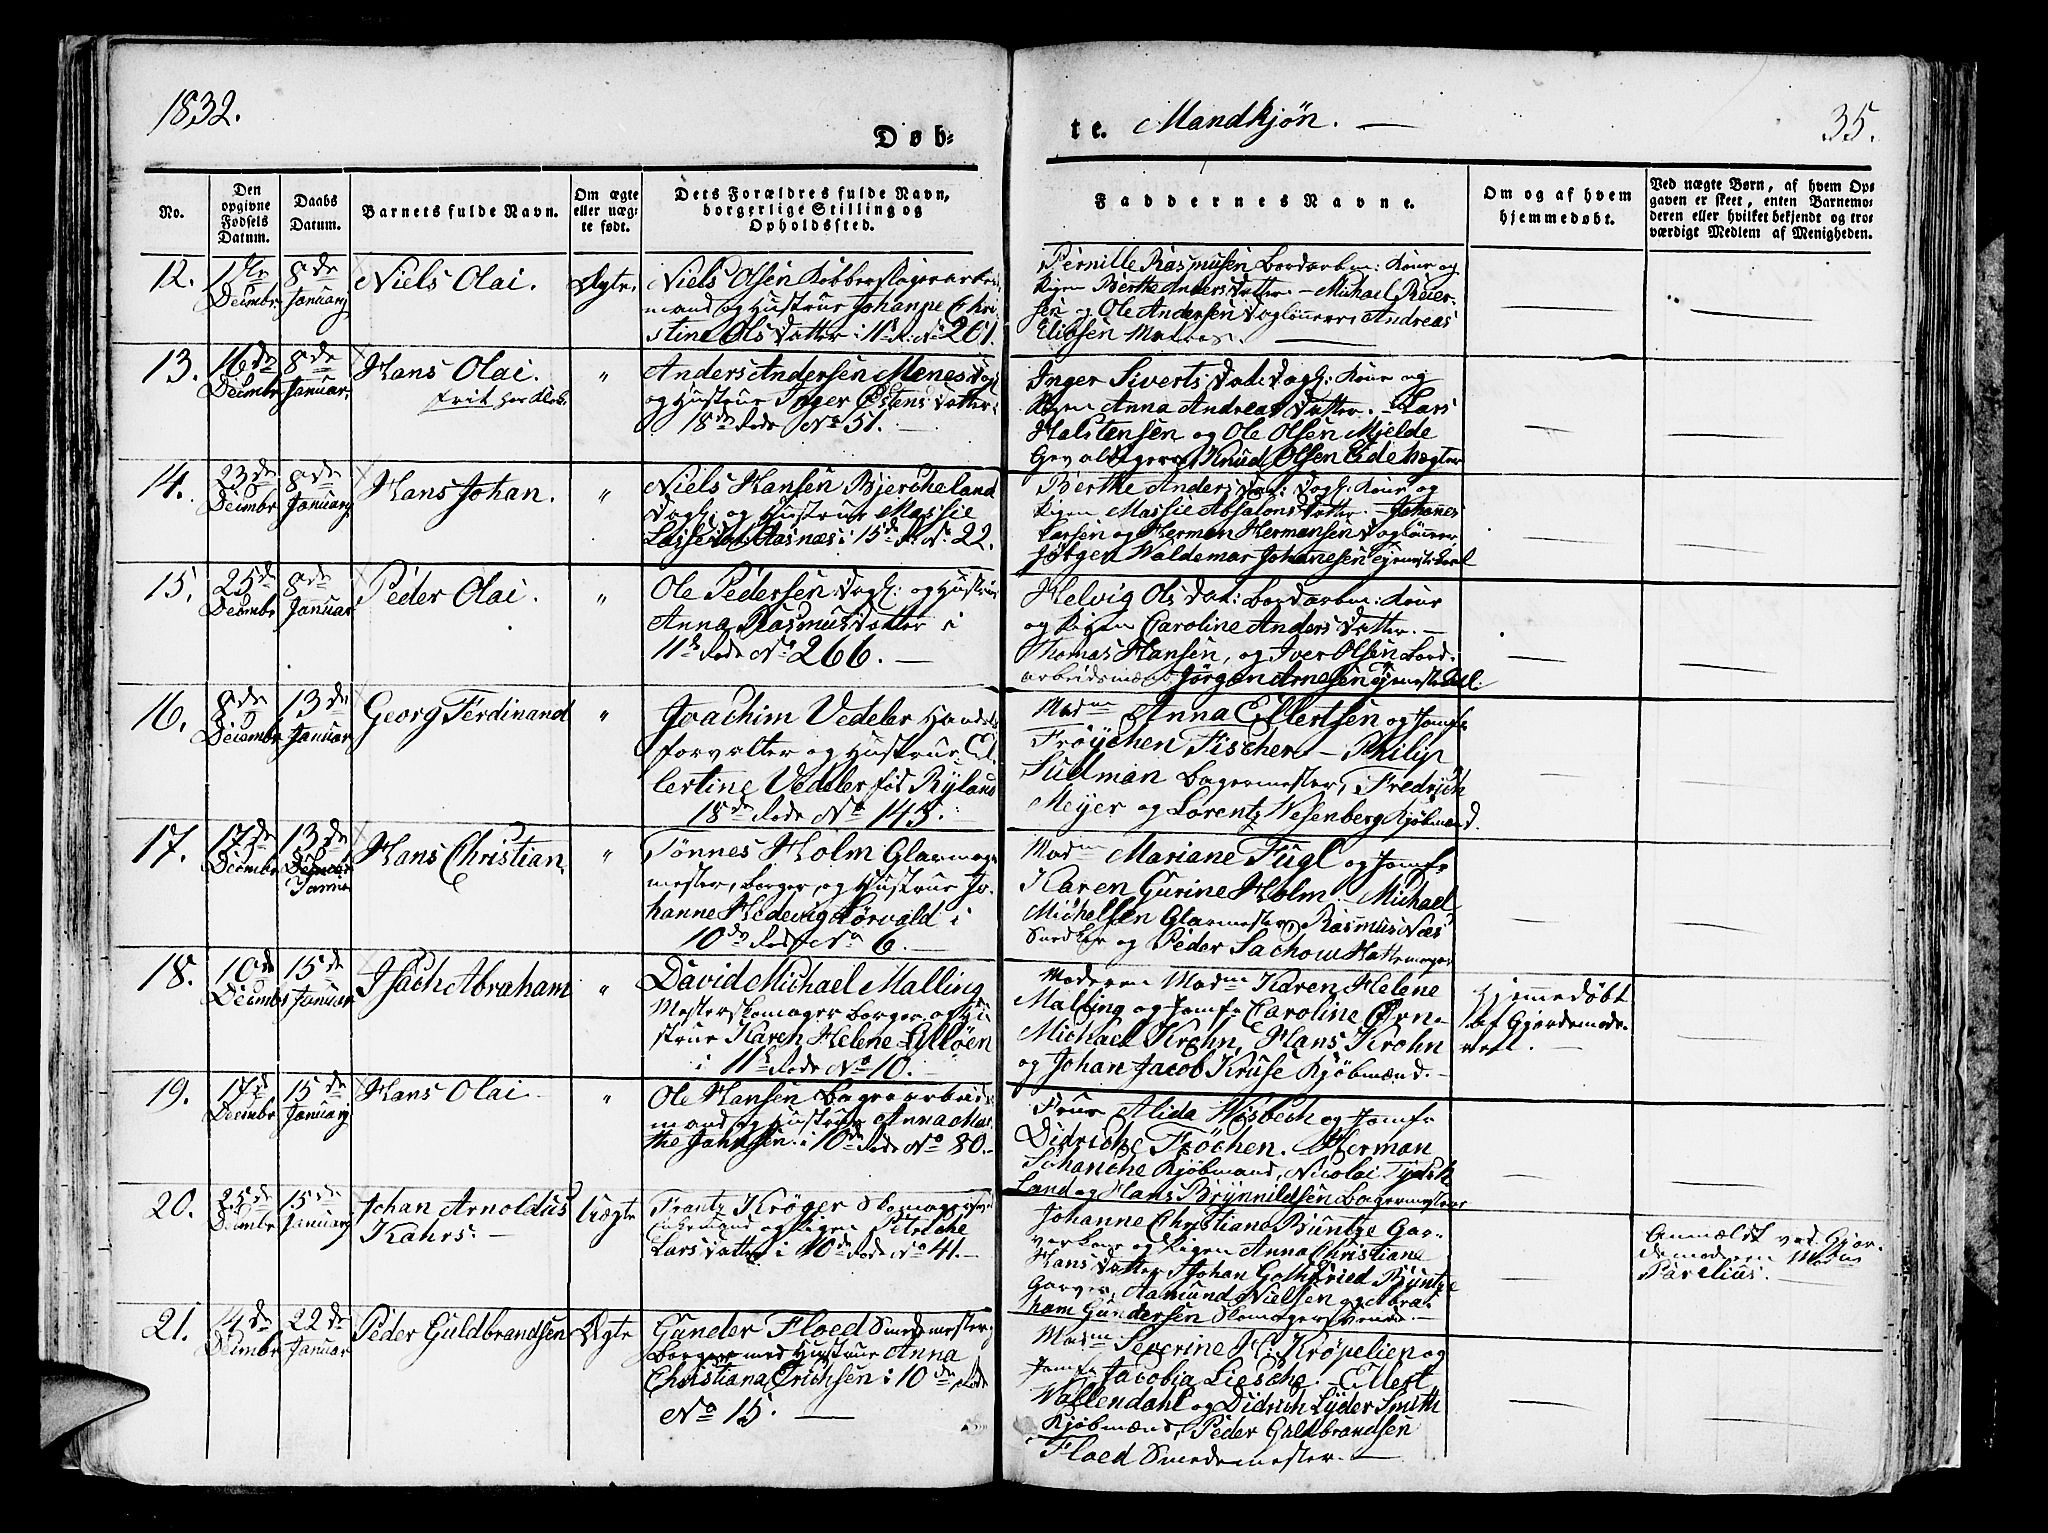 1832.
Døb-
te. Mandkjön. —
35.
No.
Den opgivne Fødsels Datum.
Daabs Datum.
Barnets fulde Navn.
Om ægte eller uægte født.
Dets Forældres fulde Navn, borgerlige Stilling og Opholdssted.
Faddernes Navne.
Om og af hvem hjemmedøbt.
Ved uægte Børn, af hvem Opgaven er skeet, enten Barnemoderen eller hvilket bekjendt og troværdigt Medlem af Menigheden.
12.
Decimbr
8de
January
Niels Olai.
Ægte.
Niels Olsen Kobberslagerarbei
mand og Hustrue Johanne Chri
stine Ols Datter i 11te R: No 201.
Pernille Rasmusen Bordarbm: Kone og
Pigen Berthe Anders Datter. — Michael Reier-
sen og Ole Andersen Daglönnere Andreas
13.
16de
Decimbr
8de
Januar.
Hans Olai.
"
Anders Andersen Menes Dagl
og Hustrue Inger Østens Datter
18de Rode No 51. —
Inger Siverts Dat: Dagl: Kone og
Pigen Anna Andreas Datter. — Lars
Halstensen og Ole Olsen Mjelde
Knud Olsen Eide Vægter
14.
23de
Decimbr
8de
January
Hans Johan.
"
Niels Hansen Bjercheland
Dagl: og Hustrue Massie
i 15de R. No. 22.
Berthe Anders Dat: Dagl: Kone og
Pigen Massie Absalons Datter. — Johanes
Larsen og Herman Hermansen Daglönnere
Jörgen Waldemar Johanesen Tjeneste Karl
15.
25de
Decmbr
8de
Januar
Peder Olai.
"
Ole Pedersen Dagl: og Hustrue
Anna Rasmus Datter i
11te Rode No 266. —
Helvig Ols Dat: Bordarbm: Kone
og Pigen Caroline Anders Datter. —
Thomas Hansen, og Iver Olsen Bord-
arbeidsmænd Jörgen Arnesen Tjeneste Karl.
16.
8de
Decembr
13de
Januar
Georg Ferdinand
"
Joachim Vedeler Handels
forvalter og Hustrue El
lertine Vedeler föd Ryland
18de Rode No 143.
Madm Anna Ellertsen og Jomfr
Fröychen Fischer. — Philip
Sudman Bagermester, Fredrich
Meyer og Lorentz Wesenberg Kjöbmænd.
17.
17de
Decmbr
13de
Januar
Hans Christian
"
Tönnes Holm Glarmager
mester, Borger, og Hustrue Jo
hanne Hedevig Lörvald i
10de Rode No 6. —
Madm Mariane Fugl og Jomfr
Karen Gurine Holm. Michael
Michelsen Glarmester, Rasmus Næs
Snedker og Peder Sachow Hattemager
18.
10de
Decimbr
15de
Januar
Isach Abraham
"
David Michael Malling
Mesterskomager Borger, og Hu
strue Karen Helene Lillöen
i 11te Rode No 10. —
Moderen Madm Karen Helene
Malling og Jomfr Caroline Örn —
Michael Krohn, Hans Krohn
og Johan Jacob Kruse Kjöbmænd. —
Hjemmedöbt
af Gjordemode-
ren.
19.
17de
Decimbr
15de
January
Hans Olai
"
Ole Hansen Bagerarbeids
mand og Hustrue Anna Mar
the Jahnsen. i 10de Rode No 80. —
Frue Alida Hysbech og Jomfr
Didriche Fröchen. Herman
Schanche Kjöbmand, Nicolai Tydsk
Land og Hans Brynnildsen Bagermestere
20.
25de
Decimbr
15de
January
Johan Arnoldus
Kahrs. —
Uægte
Frantz Kröger Skomagersvend
Enkemand og Pigen Petriche
Lars Datter i 10de Rode No 41. —
Johanne Christiane Büntze Gar-
verkone og Pigen Anna Christiane
Hans Datter. Johan Gothfried Büntze
Garver, Aamund Nielsen og Abra-
ham Gundersen Skomagersvende. —
Anmældt ved Gjor-
demoderen Madm
Parelius. —
21.
14de
Decimbr
22de
Januar
Peder Guldbrandsen
Ægte
Gunder Floed Smedemester,
Borger med Hustrue Anna
Christiana Erichsen i 10de Rode
No 15. —
Madm Severine H: Kröpelien og
Jomfr Jacobia Liesche. — Ellert
Wallendahl og Didrich Lyder Smith
Kjöbmænd, Peder Guldbrandsen
Floed Smedemester. —